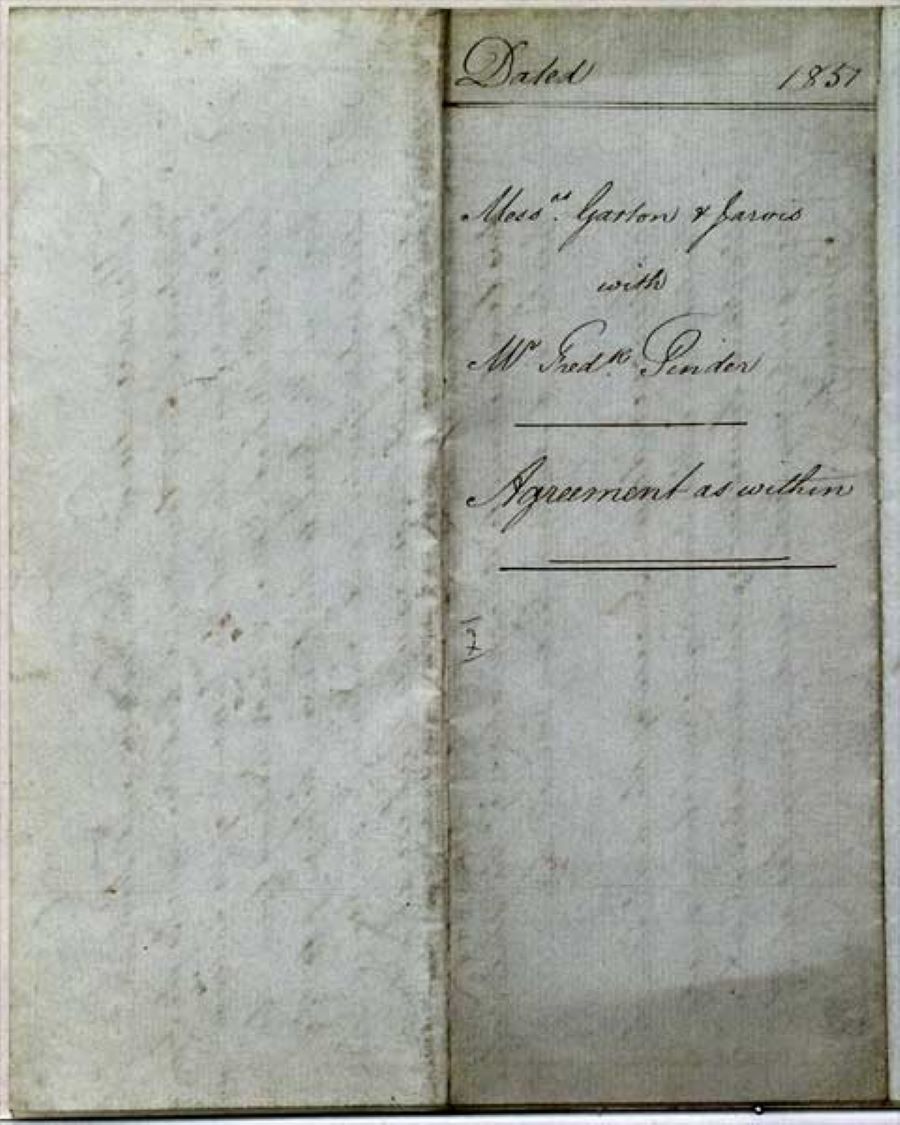 Dated 1851
Mess.rs Garton & Jarvis
with
Mr Fredk Pinder
Agreement as within
7